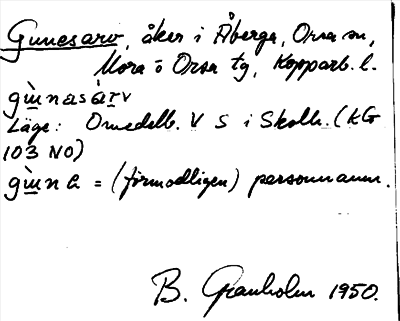 Gunesarv, åker i Åberga, Orsa sn,
Mora o Orsa tg, Kopparb. l.
gùnasàrv
Läge: Omedelb. V S i Skolh. (KG
103 NO)
gùna = (förmodligen) personnamn.
B. Granholm 1950.